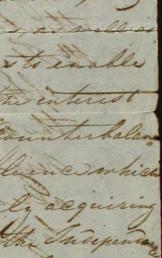 as well as
as to enable
the interest
counterbalan
fluence which
ly acquiring
the Independen